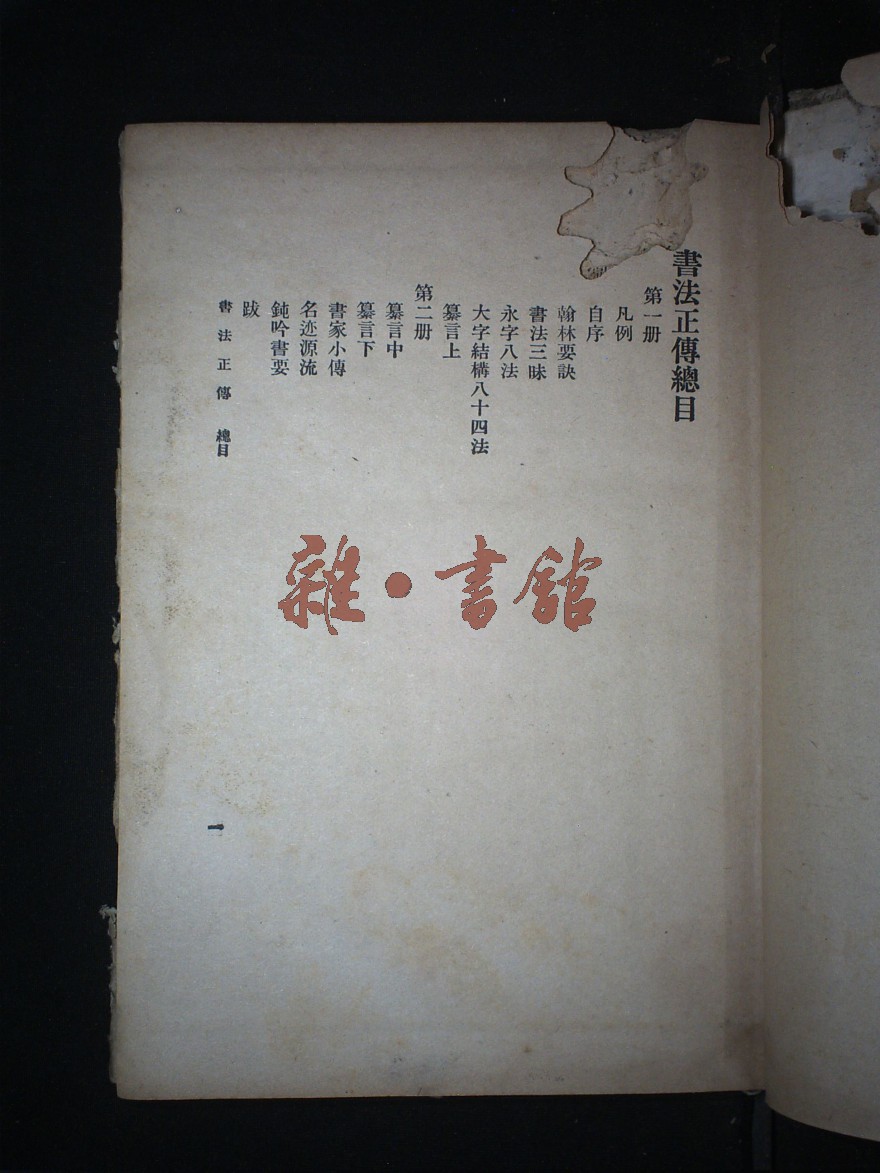 書法正傳總目
第一册
凡例
自序
翰林要訣
書法三昧
永字八法
大字結構八十四法
纂言上
第二册
纂言中
纂言下
書家小傳
名迹源流
鈍吟書要
跋
書法正傳 總目
一
雜·書館